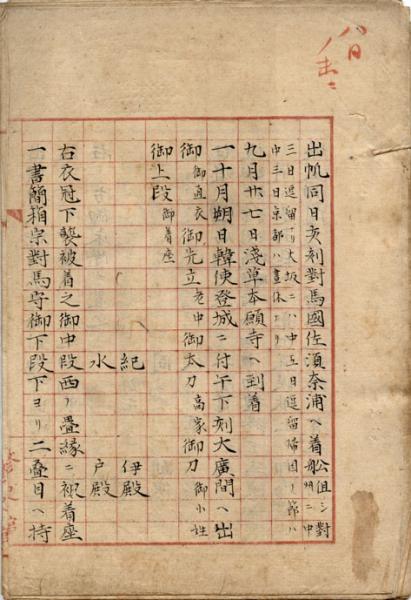 八日
出帆同日亥刻對馬國佐須奈浦ヘ着船但シ對
州ニ中三日逗留リ大坂ニハ中五日逗留歸国ノ節ハ
中三日京都ハ晝休ナリ
九月廿七日淺草本願寺ヘ到着
一十月朔日韓使登城ニ付午下刻大廣間ヘ出
御御直衣御先立老中御太刀高家御刀御小性
御上段御着座
紀伊殿
水戸殿
右衣冠下襲被着之御中段西ノ疊縁ニ被着座
一書簡箱宗對馬守御下段下ヨリ二疊目ヘ持